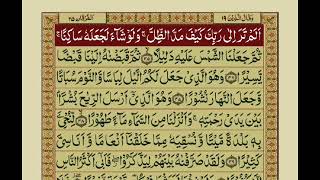 وَقَالَ الَّذِيْنَ ١٩ الفرقان ٢٥
اَلَمْ تَرَ اِلٰى رَبِّكَ كَيْفَ مَدَّ الظِّلَّ ۚ وَلَوْ شَآءَ لَجَعَلَهٗ سَاكِنًا ۚ
ثُمَّ جَعَلْنَا الشَّمْسَ عَلَيْهِ دَلِيْلًا ۙ﴿٤٥﴾ ثُمَّ قَبَضْنٰهُ اِلَيْنَا قَبْضًا
يَّسِيْرًا ﴿٤٦﴾ وَهُوَ الَّذِيْ جَعَلَ لَكُمُ الَّيْلَ لِبَاسًا وَّالنَّوْمَ سُبَاتًا
وَّجَعَلَ النَّهَارَ نُشُوْرًا ﴿٤٧﴾ وَهُوَ الَّذِيْٓ اَرْسَلَ الرِّيٰحَ بُشْرًۢا
بَيْنَ يَدَيْ رَحْمَتِهٖ ۚ وَاَنْزَلْنَا مِنَ السَّمَآءِ مَآءً طَهُوْرًا ﴿٤٨﴾ لِّنُحْيِۦَ
بِهٖ بَلْدَةً مَّيْتًا وَّنُسْقِيَهٗ مِمَّا خَلَقْنَآ اَنْعَامًا وَّاَنَاسِيَّ
كَثِيْرًا ﴿٤٩﴾ وَلَقَدْ صَرَّفْنٰهُ بَيْنَهُمْ لِيَذَّكَّرُوْا ۖ فَاَبٰٓى اَكْثَرُ النَّاسِ